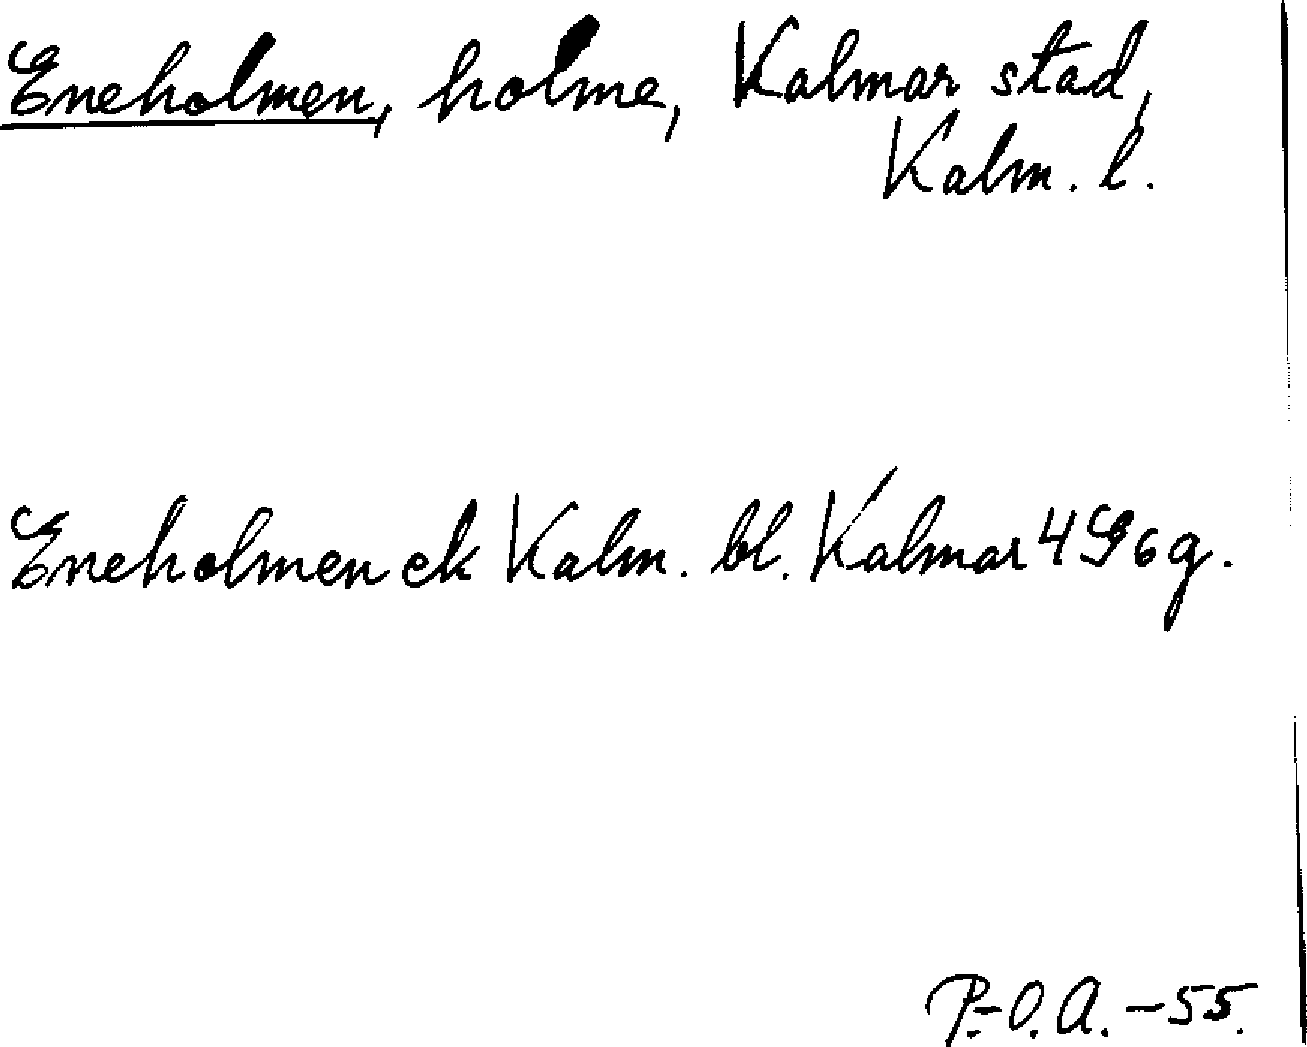 Eneholmen, holme, Kalmar stad,
Kalm. l.
Eneholmen ek Kalm. bl. Kalmar 4G 6g.
P.-O. A. -55.